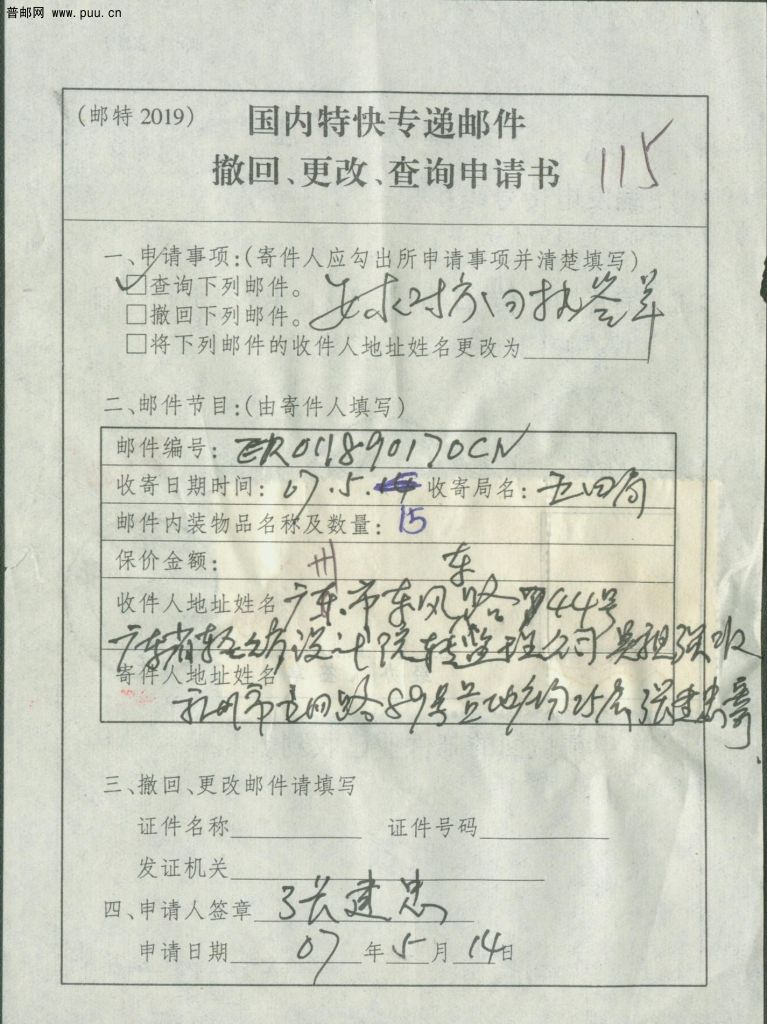 普邮网 www.puu.cn
(邮特 2019)
国内特快专递邮件
撤回、更改、查询申请书
115
一、申请事项:(寄件人应勾出所申请事项并清楚填写)
✓□查询下列邮件。
要求对方回执签单
□撤回下列邮件。
□将下列邮件的收件人地址姓名更改为
二、邮件节目:(由寄件人填写)
邮件编号: ER011890170CN
收寄日期时间: 07.5. 收寄局名: 五四局
邮件内装物品名称及数量: 15
保价金额:
收件人地址姓名 广州市东风东路744号
广东省轻纺设计院转监理公司 收
寄件人地址姓名
福州市五四路89号 张建忠寄
三、撤回、更改邮件请填写
证件名称 证件号码
发证机关
四、申请人签章 张建忠
申请日期 07 年 5 月 14 日